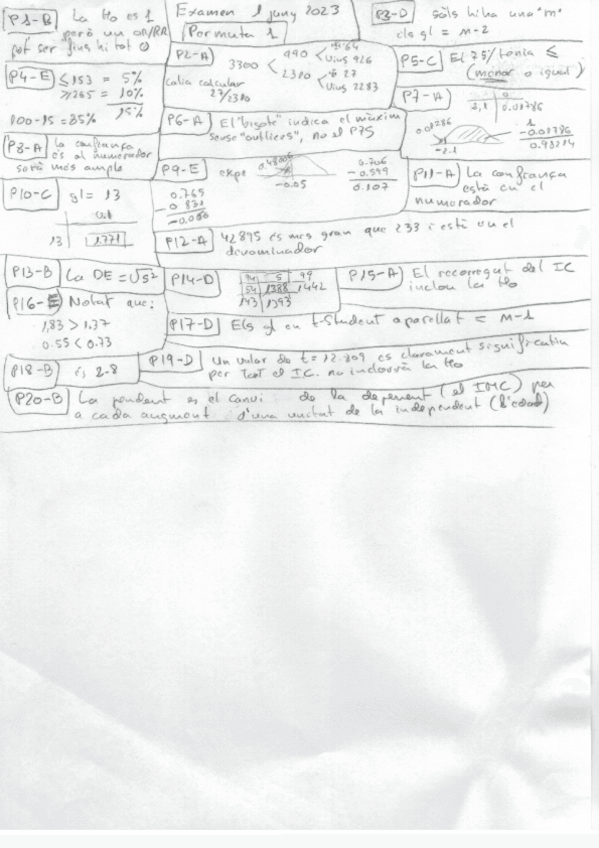 Examen 1 juny 2023
Permuta 1
P1-B La Ho és 1
però un OR/RR
pot ser fins hi tot 0
P2-A
3300
990 † 64
Vius 926
2310 † 27
Vius 2283
calia calcular
27/2310
P3-D sols hi ha una "m"
els gl = m-2
P4-E ≤153 = 5%
≥265 = 10%
15%
100-15 = 85%
P5-C El 75/tenia ≤
(menor o igual)
P6-A El "bigote" indica el màxim
sense "outliers", no el P75
P7-A
0
2,1 0.01786
0.01786
-2.1
1
-0.01786
0.98214
P8-A La confiança
és al numerador
serà més ample
P9-E
-0.05
0.765
0.706
-0.599
0.107
P10-C gl = 13
0.1
13 1.771
P11-A La confiança
està en el
numerador
P12-A 42895 és més gran que 233 i està en el
denominador
P13-B La DE = √S²
P14-D
94 5 99
54 1388 1442
143 1393
P15-A El recorregut del IC
inclou la Ho
P16-E Notat que:
1,83 > 1.37
0.55 < 0.73
P17-D Els gl en t-Student aparellat = m-1
P18-B és 2-8
P19-D Un valor de t = 12.809 es clarament significatiu
per tant el IC no inclourà la Ho
P20-B La pendent es el canvi de la depenent (el IMC) per
a cada augment d'una unitat de la independent (l'edad)